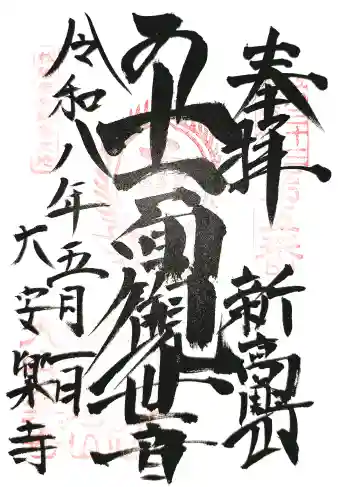 奉拝
新高野山
十一面観世音
令和八年五月一日
大安楽寺